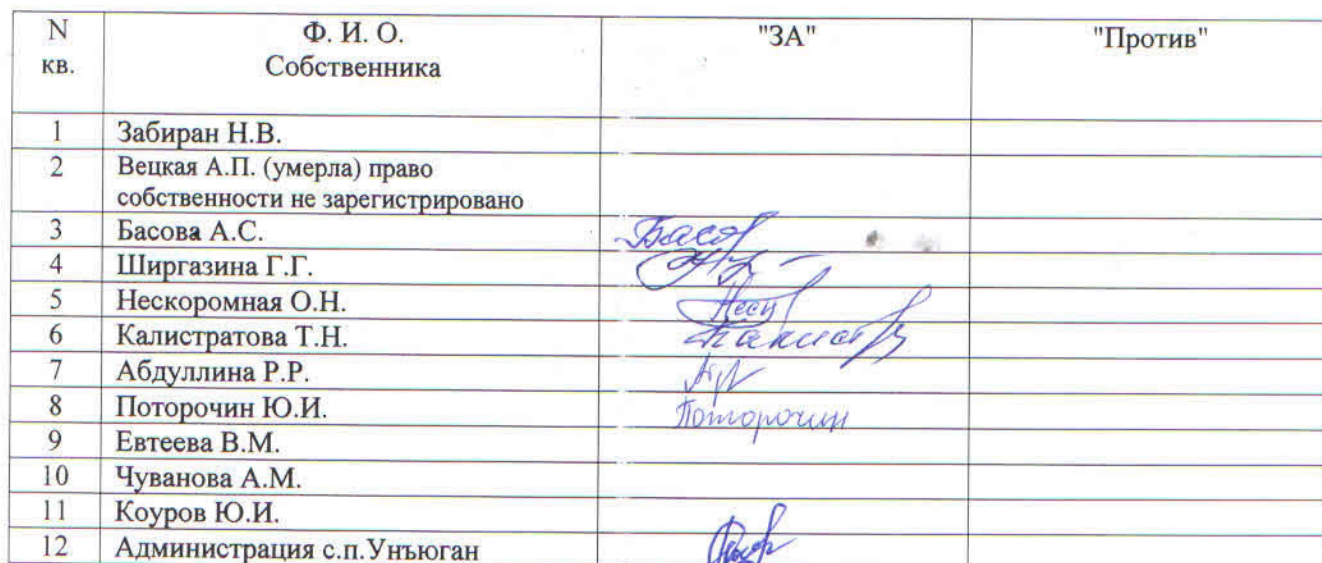 N кв.
Ф. И. О. Собственника
"ЗА"
"Против"
1 Забиран Н.В.
2 Вецкая А.П. (умерла) право
собственности не зарегистрировано
3 Басова А.С. Басов
4 Ширгазина Г.Г.
5 Нескоромная О.Н.
6 Калистратова Т.Н.
7 Абдуллина Р.Р.
8 Поторочин Ю.И. Поторочин
9 Евтеева В.М.
10 Чуванова А.М.
11 Коуров Ю.И.
12 Администрация с.п.Унъюган